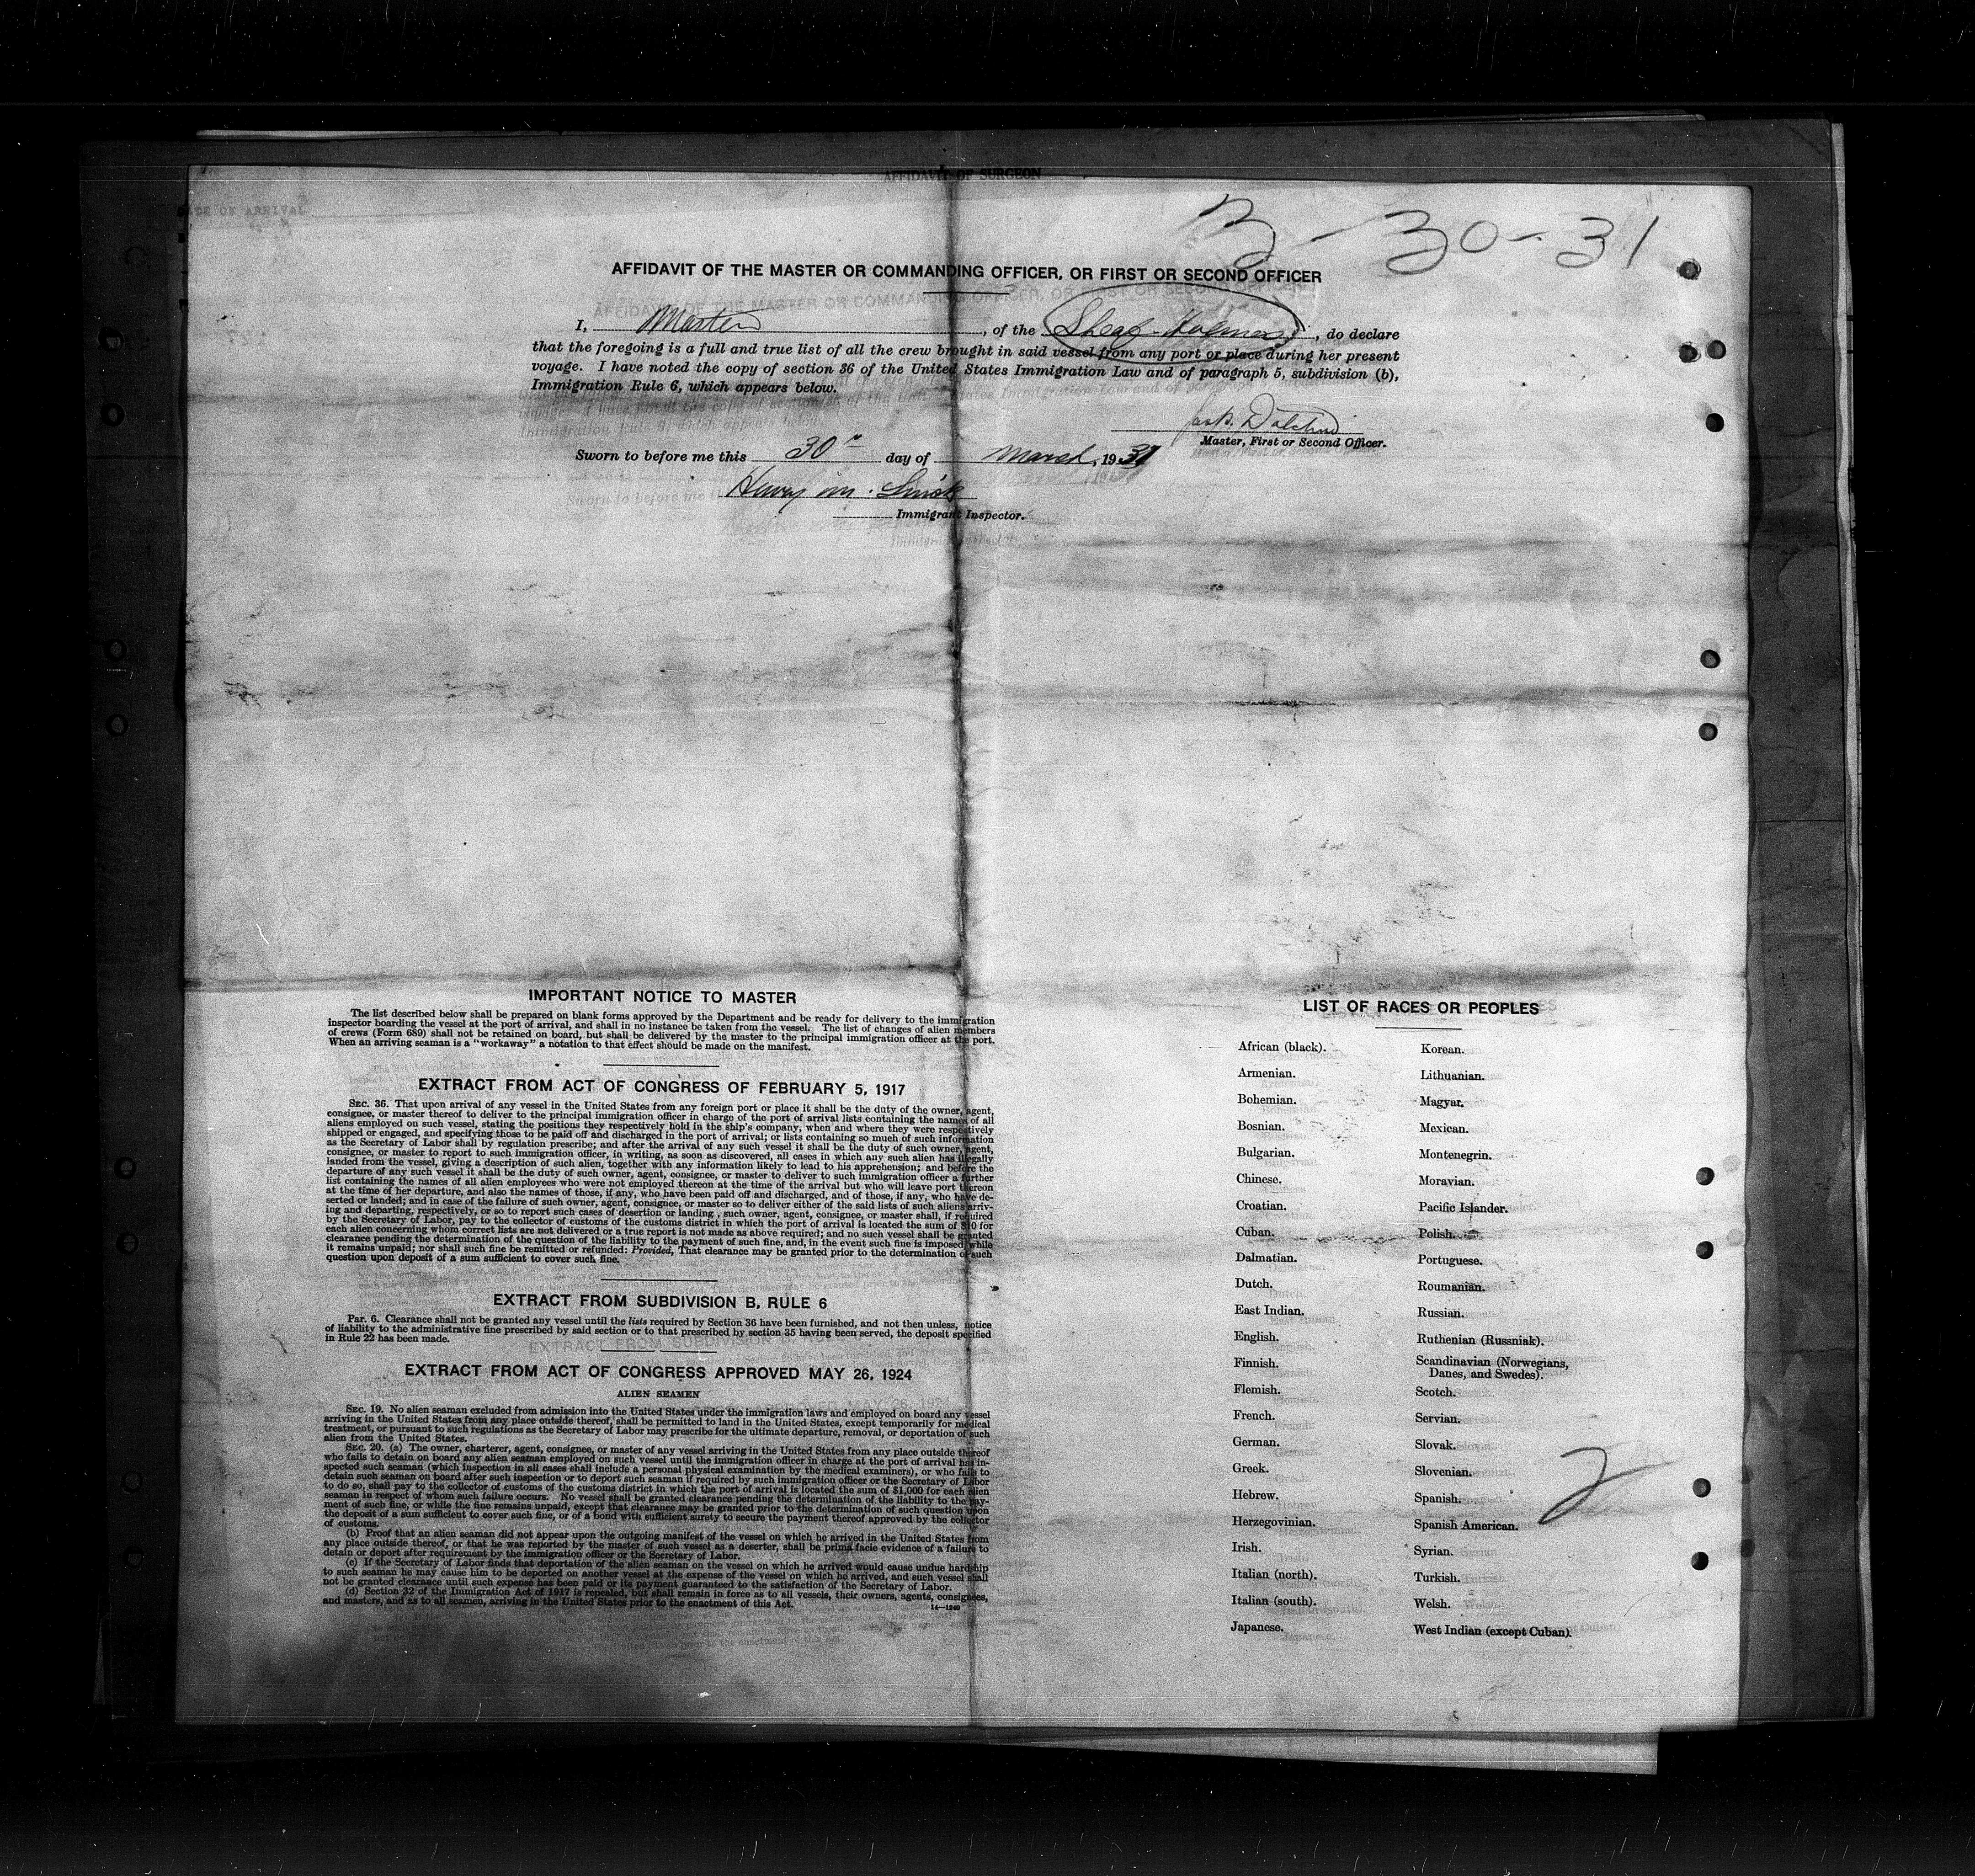 AFFIDAVIT OF SURGEON
DATE OF ARRIVAL
3-30-31
AFFIDAVIT OF THE MASTER OR COMMANDING OFFICER, OR FIRST OR SECOND OFFICER
I, Master, of the Sheaf Holme, do declare
that the foregoing is a full and true list of all the crew brought in said vessel from any port or place during her present
voyage. I have noted the copy of section 36 of the United States Immigration Law and of paragraph 5, subdivision (b),
Immigration Rule 6, which appears below.
Master, First or Second Officer.
Sworn to before me this 30" day of March, 1931
Henry M.
Immigrant Inspector.
IMPORTANT NOTICE TO MASTER
The list described below shall be prepared on blank forms approved by the Department and be ready for delivery to the immigration
inspector boarding the vessel at the port of arrival, and shall in no instance be taken from the vessel. The list of changes of alien members
of crews (Form 689) shall not be retained on board, but shall be delivered by the master to the principal immigration officer at the port.
When an arriving seaman is a "workaway" a notation to that effect should be made on the manifest.
EXTRACT FROM ACT OF CONGRESS OF FEBRUARY 5, 1917
SEC. 36. That upon arrival of any vessel in the United States from any foreign port or place it shall be the duty of the owner, agent,
consignee, or master thereof to deliver to the principal immigration officer in charge of the port of arrival lists containing the names of all
aliens employed on such vessel, stating the positions they respectively hold in the ship's company, when and where they were respectively
shipped or engaged, and specifying those to be paid off and discharged in the port of arrival; or lists containing so much of such information
as the Secretary of Labor shall by regulation prescribe; and after the arrival of any such vessel it shall be the duty of such owner, agent,
consignee, or master to report to such immigration officer, in writing, as soon as discovered, all cases in which any such alien has illegally
landed from the vessel, giving a description of such alien, together with any information likely to lead to his apprehension; and before the
departure of any such vessel it shall be the duty of such owner, agent, consignee, or master to deliver to such immigration officer a further
list containing the names of all alien employees who were not employed thereon at the time of the arrival but who will leave port thereon
at the time of her departure, and also the names of those, if any, who have been paid off and discharged, and of those, if any, who have de-
serted or landed; and in case of the failure of such owner, agent, consignee, or master so to deliver either of the said lists of such aliens arriv-
ing and departing, respectively, or so to report such cases of desertion or landing, such owner, agent, consignee, or master, shall, if required
by the Secretary of Labor, pay to the collector of customs of the customs district in which the port of arrival is located the sum of $10 for
each alien concerning whom correct lists are not delivered or a true report is not made as above required; and no such vessel shall be granted
clearance pending the determination of the question of the liability to the payment of such fine, and, in the event such fine is imposed, while
it remains unpaid; nor shall such fine be remitted or refunded: Provided, That clearance may be granted prior to the determination of such
question upon deposit of a sum sufficient to cover such fine.
EXTRACT FROM SUBDIVISION B, RULE 6
Par. 6. Clearance shall not be granted any vessel until the lists required by Section 36 have been furnished, and not then unless, notice
of liability to the administrative fine prescribed by said section or to that prescribed by section 35 having been served, the deposit specified
in Rule 22 has been made.
EXTRACT FROM ACT OF CONGRESS APPROVED MAY 26, 1924
ALIEN SEAMEN
SEC. 19. No alien seaman excluded from admission into the United States under the immigration laws and employed on board any vessel
arriving in the United States from any place outside thereof, shall be permitted to land in the United States, except temporarily for medical
treatment, or pursuant to such regulations as the Secretary of Labor may prescribe for the ultimate departure, removal, or deportation of such
alien from the United States.
SEC. 20. (a) The owner, charterer, agent, consignee, or master of any vessel arriving in the United States from any place outside thereof
who fails to detain on board any alien seaman employed on such vessel until the immigration officer in charge at the port of arrival has in-
spected such seaman (which inspection in all cases shall include a personal physical examination by the medical examiners), or who fails to
detain such seaman on board after such inspection or to deport such seaman if required by such immigration officer or the Secretary of Labor
to do so, shall pay to the collector of customs of the customs district in which the port of arrival is located the sum of $1,000 for each alien
seaman in respect of whom such failure occurs. No vessel shall be granted clearance pending the determination of the liability to the pay-
ment of such fine, or while the fine remains unpaid, except that clearance may be granted prior to the determination of such question upon
the deposit of a sum sufficient to cover such fine, or of a bond with sufficient surety to secure the payment thereof approved by the collector
of customs.
(b) Proof that an alien seaman did not appear upon the outgoing manifest of the vessel on which he arrived in the United States from
any place outside thereof, or that he was reported by the master of such vessel as a deserter, shall be prima facie evidence of a failure to
detain or deport after requirement by the immigration officer or the Secretary of Labor.
(c) If the Secretary of Labor finds that deportation of the alien seaman on the vessel on which he arrived would cause undue hardship
to such seaman he may cause him to be deported on another vessel at the expense of the vessel on which he arrived, and such vessel shall
not be granted clearance until such expense has been paid or its payment guaranteed to the satisfaction of the Secretary of Labor.
(d) Section 32 of the Immigration Act of 1917 is repealed, but shall remain in force as to all vessels, their owners, agents, consignees,
and masters, and as to all seamen, arriving in the United States prior to the enactment of this Act.
14-1240
LIST OF RACES OR PEOPLES
African (black).
Armenian.
Bohemian.
Bosnian.
Bulgarian.
Chinese.
Croatian.
Cuban.
Dalmatian.
Dutch.
East Indian.
English.
Finnish.
Flemish.
French.
German.
Greek.
Hebrew.
Herzegovinian.
Irish.
Italian (north).
Italian (south).
Japanese.
Korean.
Lithuanian.
Magyar.
Mexican.
Montenegrin.
Moravian.
Pacific Islander.
Polish.
Portuguese.
Roumanian.
Russian.
Ruthenian (Russniak).
Scandinavian (Norwegians,
Danes, and Swedes).
Scotch.
Servian.
Slovak.
Slovenian.
Spanish.
Spanish American.
Syrian.
Turkish.
Welsh.
West Indian (except Cuban).
2